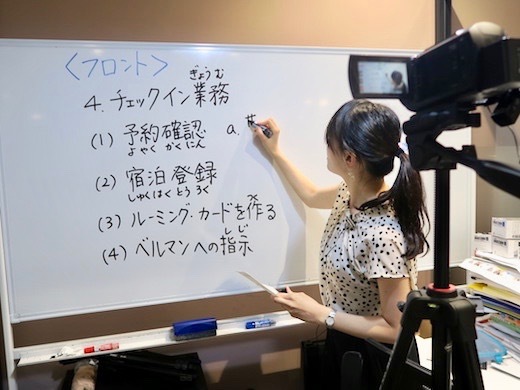 <フロント>
ぎょうむ
4. チェックイン業務
(1) 予約確認 a.
よやく かくにん
(2) 宿泊登録
しゅくはくとうろく
つく
(3) ルーミング・カードを作る
しじ
(4) ベルマンへの指示